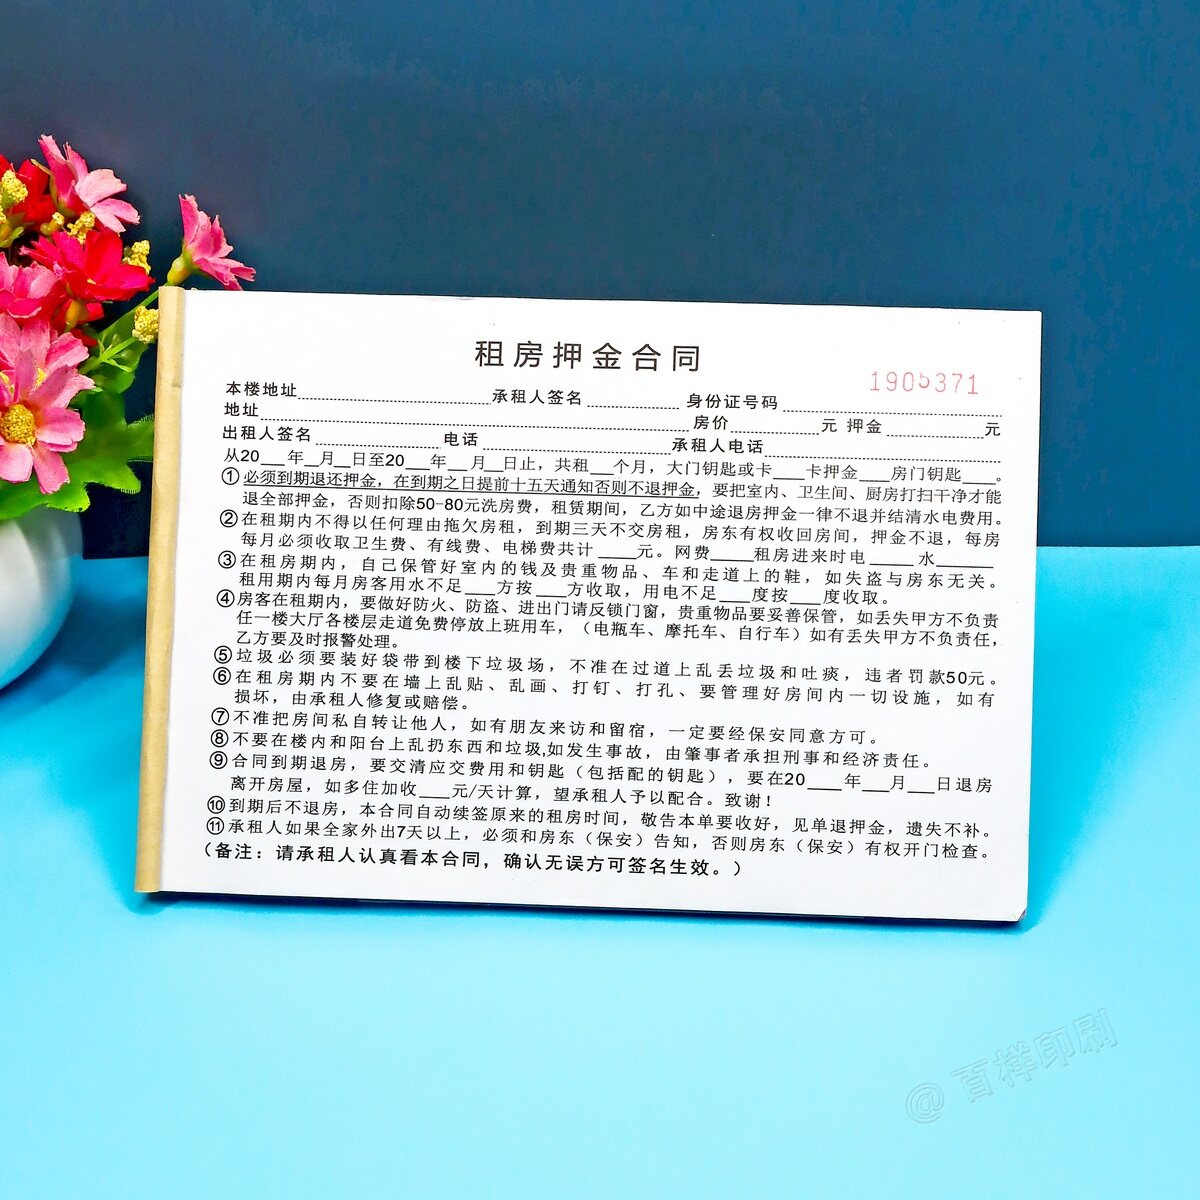 租房押金合同
1905371
本楼地址 承租人签名 身份证号码
地址 房价 元 押金 元
出租人签名 电话 承租人电话
从20___年__月__日至20___年__月__日止，共租__个月，大门钥匙或卡____卡押金____房门钥匙____。
①必须到期退还押金，在到期之日提前十五天通知否则不退押金，要把室内、卫生间、厨房打扫干净才能
退全部押金，否则扣除50-80元洗房费，租赁期间，乙方如中途退房押金一律不退并结清水电费用。
②在租期内不得以任何理由拖欠房租，到期三天不交房租，房东有权收回房间，押金不退，每房
每月必须收取卫生费、有线费、电梯费共计____元。网费_____租房进来时电_____水______
③在租房期内，自己保管好室内的钱及贵重物品、车和走道上的鞋，如失盗与房东无关。
租用期内每月房客用水不足___方按___方收取，用电不足___度按___度收取。
④房客在租期内，要做好防火、防盗、进出门请反锁门窗，贵重物品要妥善保管，如丢失甲方不负责
任一楼大厅各楼层走道免费停放上班用车，（电瓶车、摩托车、自行车）如有丢失甲方不负责任，
乙方要及时报警处理。
⑤垃圾必须要装好袋带到楼下垃圾场，不准在过道上乱丢垃圾和吐痰，违者罚款50元。
⑥在租房期内不要在墙上乱贴、乱画、打钉、打孔、要管理好房间内一切设施，如有
损坏，由承租人修复或赔偿。
⑦不准把房间私自转让他人，如有朋友来访和留宿，一定要经保安同意方可。
⑧不要在楼内和阳台上乱扔东西和垃圾,如发生事故，由肇事者承担刑事和经济责任。
⑨合同到期退房，要交清应交费用和钥匙（包括配的钥匙），要在20____年___月___日退房
离开房屋，如多住加收___元/天计算，望承租人予以配合。致谢！
⑩到期后不退房，本合同自动续签原来的租房时间，敬告本单要收好，见单退押金，遗失不补。
⑪承租人如果全家外出7天以上，必须和房东（保安）告知，否则房东（保安）有权开门检查。
（备注：请承租人认真看本合同，确认无误方可签名生效。）
@百样印刷